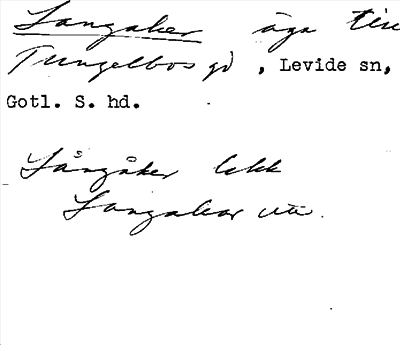 Langaker äga till
Tungelbos gd, Levide sn,
Gotl. S. hd.
Långåker bkk
Langakar utt.